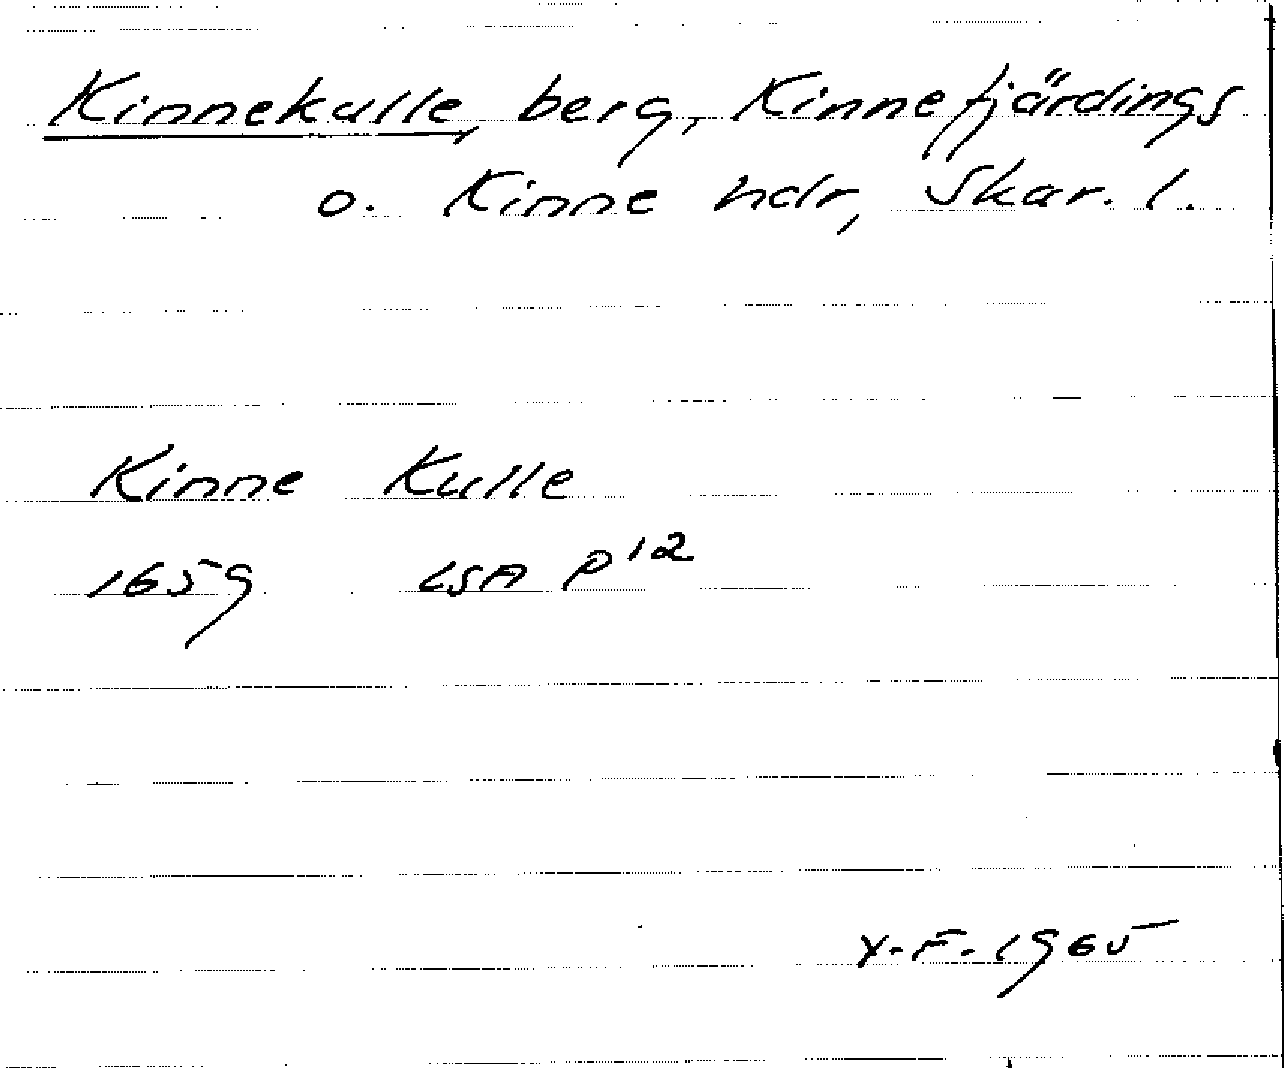 Kinnekulle, berg, Kinnefjärdings
o. Kinne hdr, Skar. l.
Kinne Kulle
1659 LSA P 12
Y.F. 1965